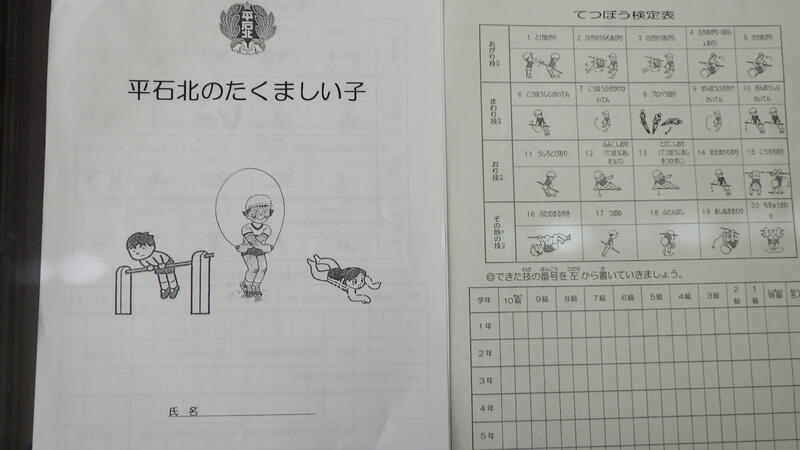 平石北
平石北のたくましい子
氏 名
てつぼう検定表
あがり技
1 とびあがり
2 ひざかけふりあがり
3 ひざかけあがり
4 さかあがり（ほじょあり）
5 さかあがり
まわり技
6 こうほうしじかいてん
7 こうほうひざかけかいてん
8 プロペラ回り
9 ぜんぽうひざかけかいてん
10 ぜんぽうしじかいてん
おり技
11 うしろとびおり
12 ふみこしおり（てつぼうにあしをついて）
13 とびこしおり（てつぼうにあしをつかずに）
14 まえまわりおり
15 こうもりおり
その他の技
16 ぶたのまるやき
17 つばめ
18 ふとんほし
19 あしぬきまわり
20 ちきゅうまわり
◎できた技の番号を左から書いていきましょう。
学年 10級 9級 8級 7級 6級 5級 4級 3級 2級 1級 特級
1年
2年
3年
4年
5年